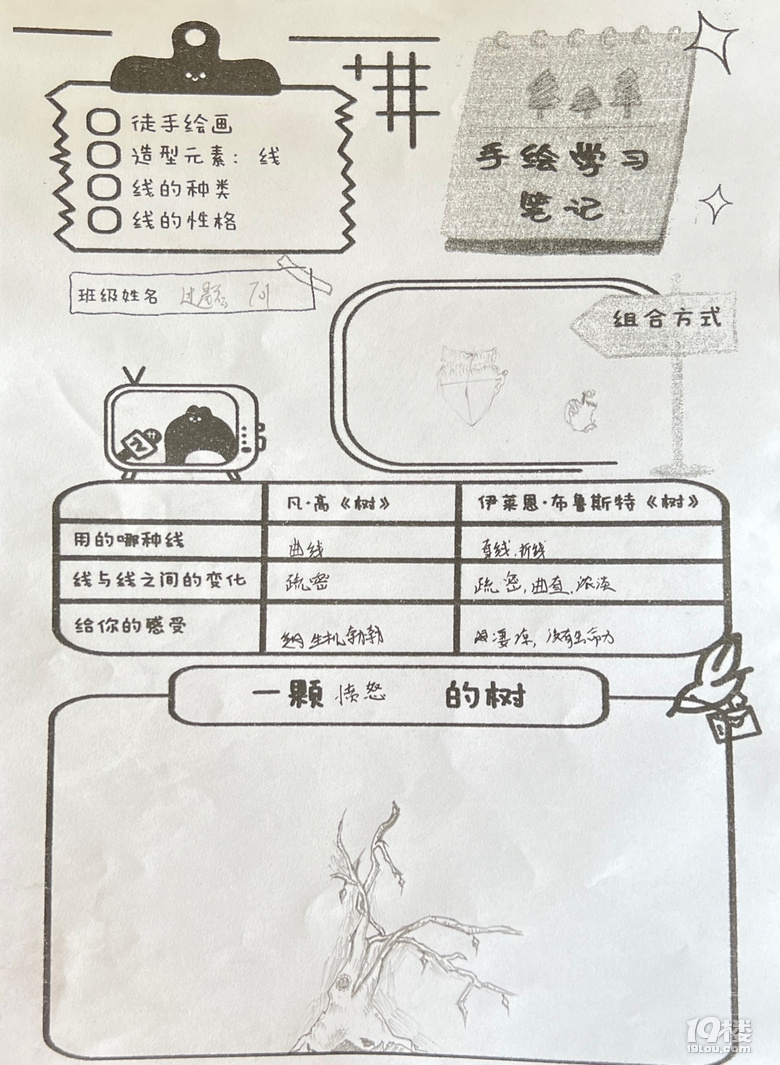 徒手绘画
造型元素：线
线的种类
线的性格
手绘学习
笔记
班级姓名 701
组合方式
凡·高《树》 伊莱恩·布鲁斯特《树》
用的哪种线 曲线 直线，折线
线与线之间的变化 疏密 疏密，曲直，浓淡
给你的感受 生机勃勃 凄凉，没有生命力
一颗愤怒的树
19楼
19lou.com